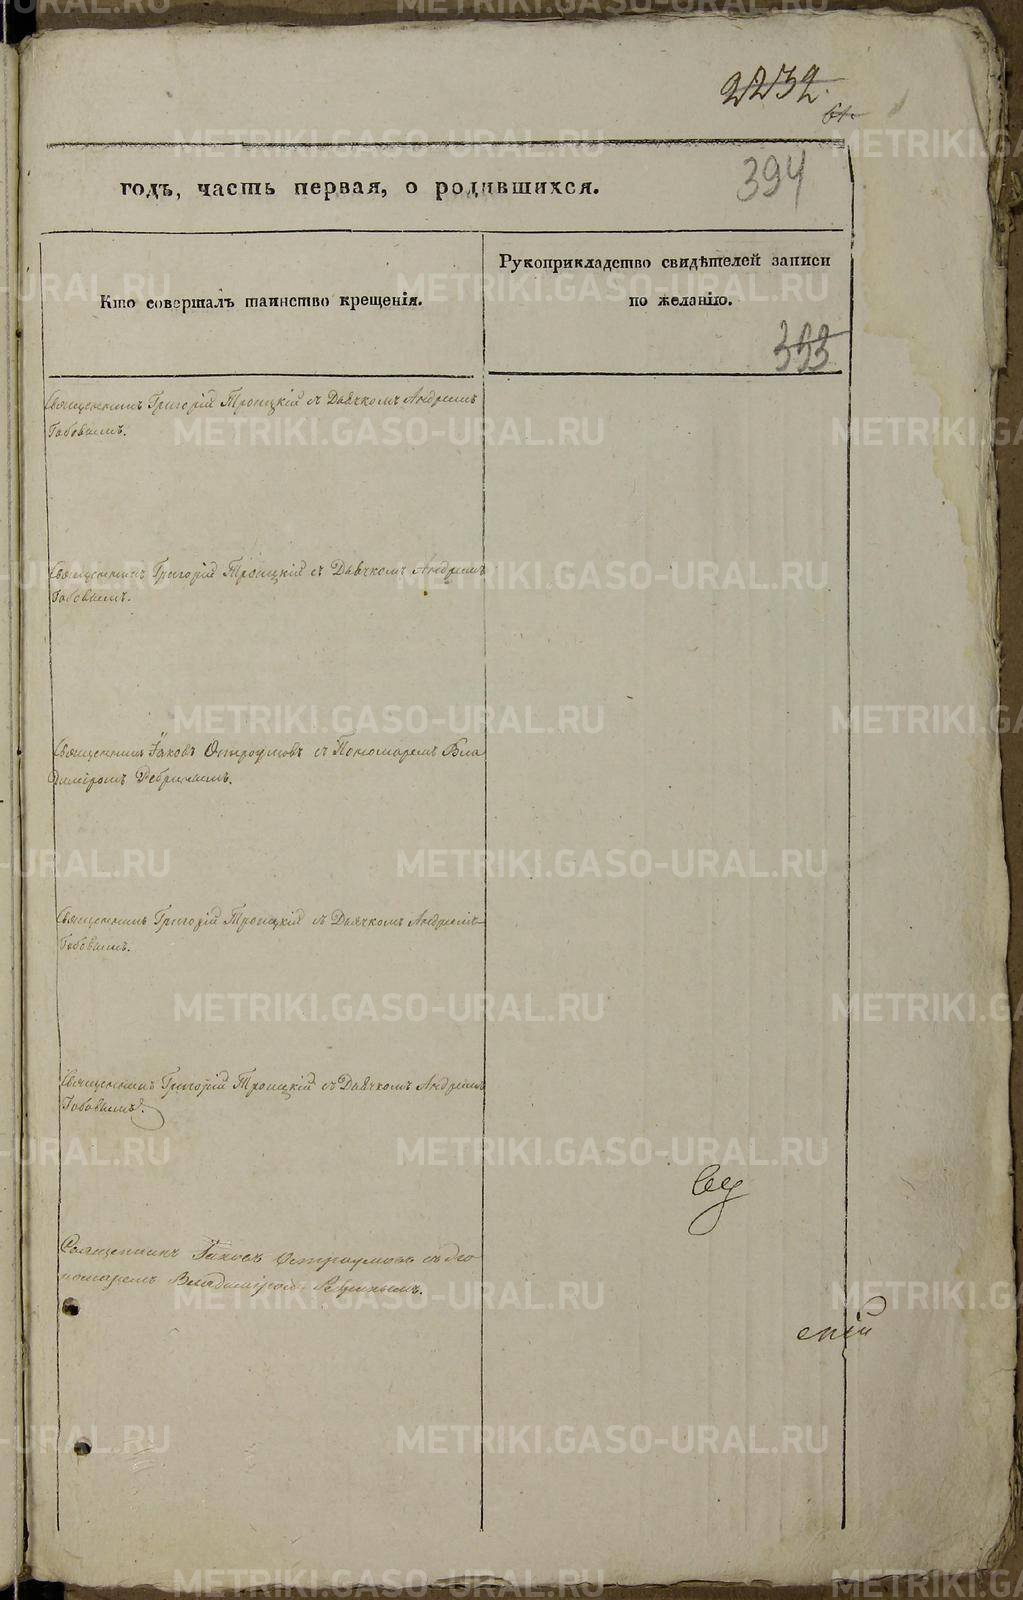 2232.
394
годъ, часть первая, о родившихся.
Кто совершалъ таинство крещенія.
Рукоприкладство свидѣтелей записи
по желанію.
353
Священникъ Григорій Троицкій съ Дьячкомъ Андреемъ
Бабовымъ.
Священникъ Григорій Троицкій съ Дьячкомъ Андреемъ
Бабовымъ.
Священникъ Іаковъ Остроумовъ съ Пономаремъ Вла
диміромъ Дебринымъ.
Священникъ Григорій Троицкій съ Дьячкомъ Андреемъ
Бабовымъ.
Священникъ Григорій Троицкій съ Дьячкомъ Андреемъ
Бабовымъ.
Священникъ Іаковъ Остроумовъ съ По
номаремъ Владиміромъ
METRIKI.GASO-URAL.RU